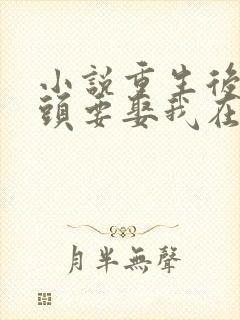 小說重生後
頭要娶我在
月半無聲